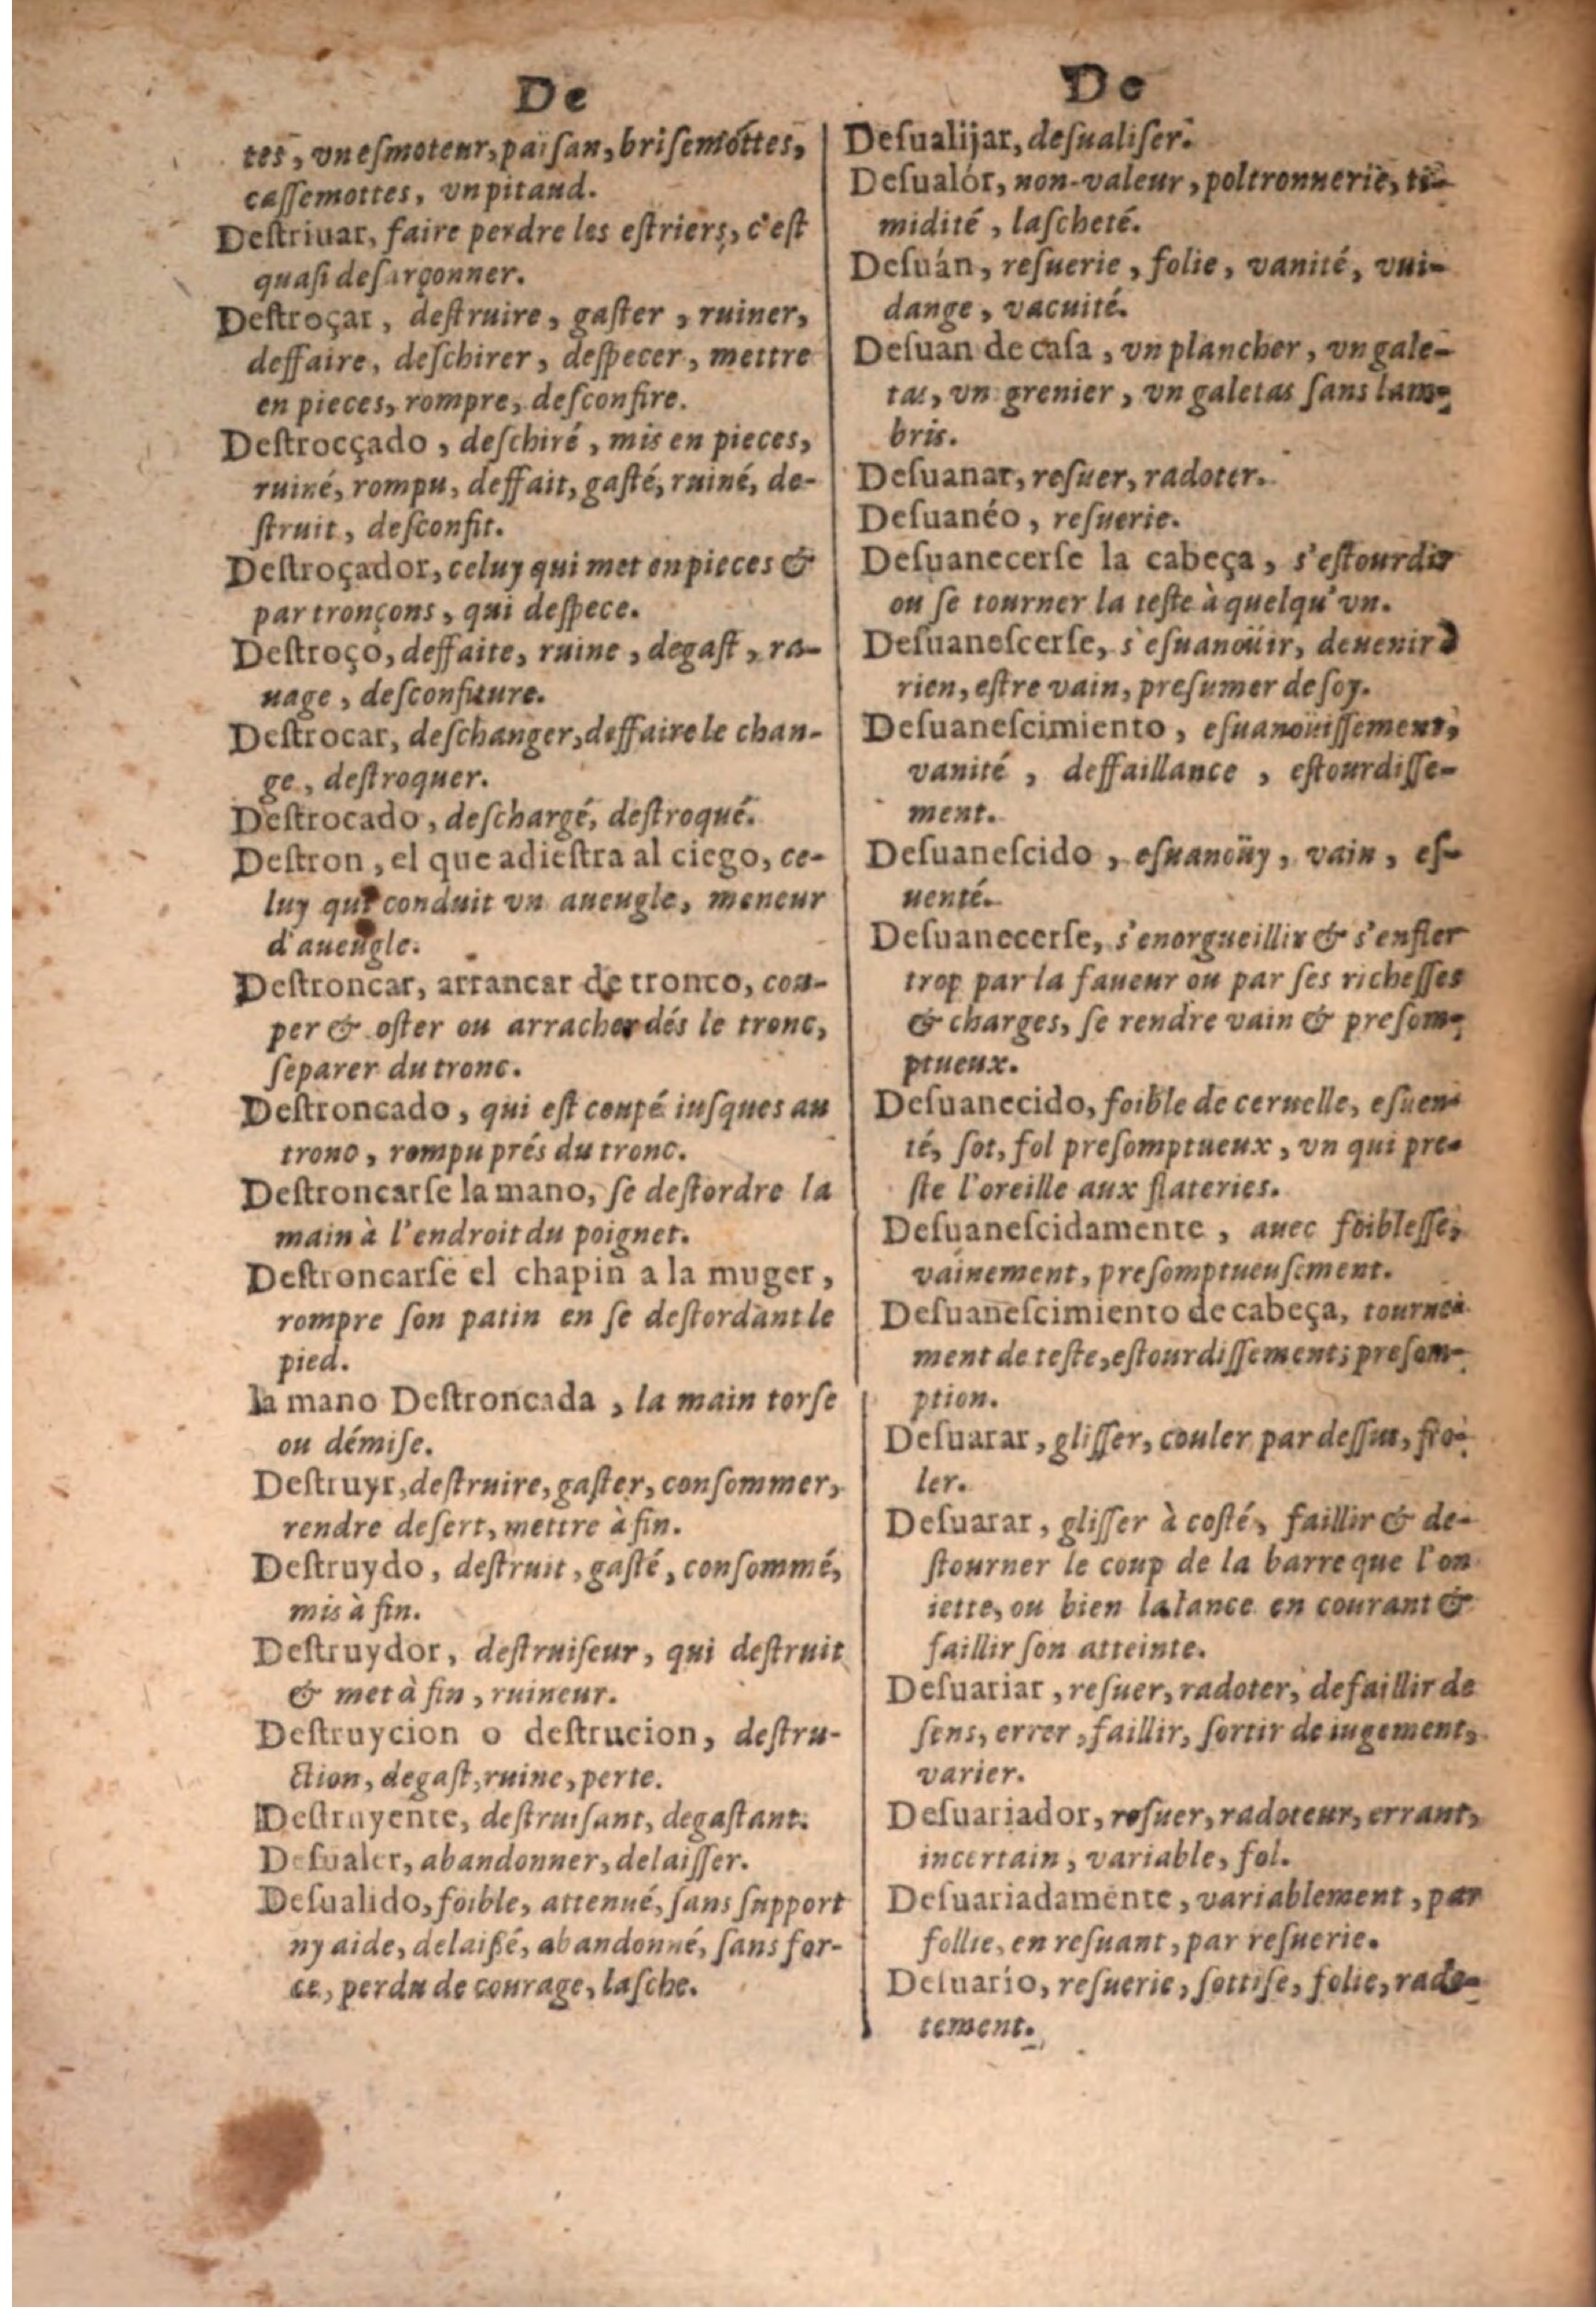 De
tes, vn eſmoteur, païſan, briſemottes,
caſſemottes, vn pitaud.
Deſtriuar, faire perdre les eſtriers, c'eſt
quaſi deſarçonner.
Deſtroçar, deſtruire, gaſter, ruiner,
deffaire, deſchirer, deſpecer, mettre
en pieces, rompre, deſconfire.
Deſtrocçado, deſchiré, mis en pieces,
ruiné, rompu, deffait, gaſté, ruiné, de-
ſtruit, deſconfit.
Deſtroçador, celuy qui met en pieces &
par tronçons, qui deſpece.
Deſtroço, deffaite, ruine, degaſt, ra-
uage, deſconfiture.
Deſtrocar, deſchanger, deffaire le chan-
ge, deſtroquer.
Deſtrocado, deſchargé, deſtroqué.
Deſtron, el que adieſtra al ciego, ce-
luy qui conduit vn aueugle, meneur
d'aueugle.
Deſtroncar, arrancar de tronco, cou-
per & oſter ou arracher dés le tronc,
ſeparer du tronc.
Deſtroncado, qui eſt coupé iuſques au
tronc, rompu prés du tronc.
Deſtroncarſe la mano, ſe deſtordre la
main à l'endroit du poignet.
Deſtroncarſe el chapin a la muger,
rompre ſon patin en ſe deſtordant le
pied.
la mano Deſtroncada, la main torſe
ou démiſe.
Deſtruyr, deſtruire, gaſter, conſommer,
rendre deſert, mettre à fin.
Deſtruydo, deſtruit, gaſté, conſommé,
mis à fin.
Deſtruydor, deſtruiſeur, qui deſtruit
& met à fin, ruineur.
Deſtruycion o deſtrucion, deſtru-
ction, degaſt, ruine, perte.
Deſtruyente, deſtruiſant, degaſtant.
Deſualer, abandonner, delaiſſer.
Deſualido, foible, attenué, ſans ſupport
ny aide, delaißé, abandonné, ſans for-
ce, perdu de courage, laſche.
De
Deſualijar, deſualiſer.
Deſualór, non-valeur, poltronnerie, ti-
midité, laſcheté.
Deſuán, reſuerie, folie, vanité, vui-
dange, vacuité.
Deſuan de caſa, vn plancher, vn gale-
tas, vn grenier, vn galetas ſans lam-
bris.
Deſuanar, reſuer, radoter.
Deſuanéo, reſuerie.
Deſuanecerſe la cabeça, s'eſtourdir
ou ſe tourner la teſte à quelqu'vn.
Deſuaneſcerſe, s'eſuanoüir, deuenir à
rien, eſtre vain, preſumer de ſoy.
Deſuaneſcimiento, eſuanoüiſſement,
vanité, deffaillance, eſtourdiſſe-
ment.
Deſuaneſcido, eſuanoüy, vain, eſ-
uenté.
Deſuanecerſe, s'enorgueillir & s'enfler
trop par la faueur ou par ſes richeſſes
& charges, ſe rendre vain & preſom-
ptueux.
Deſuanecido, foible de ceruelle, eſuen-
té, ſot, fol preſomptueux, vn qui pre-
ſte l'oreille aux flateries.
Deſuaneſcidamente, auec foibleſſe,
vainement, preſomptueuſement.
Deſuaneſcimiento de cabeça, tournei
ment de teſte, eſtourdiſſement; preſom-
ption.
Deſuarar, gliſſer, couler par deſſus, fro-
ler.
Deſuarar, gliſſer à coſté, faillir & de-
ſtourner le coup de la barre que l'on
iette, ou bien la lance en courant &
faillir ſon atteinte.
Deſuariar, reſuer, radoter, defaillir de
ſens, errer, faillir, ſortir de iugement,
varier.
Deſuariador, reſuer, radoteur, errant,
incertain, variable, fol.
Deſuariadamente, variablement, par
follie, en reſuant, par reſuerie.
Deſuarío, reſuerie, ſottiſe, folie, rado-
tement.